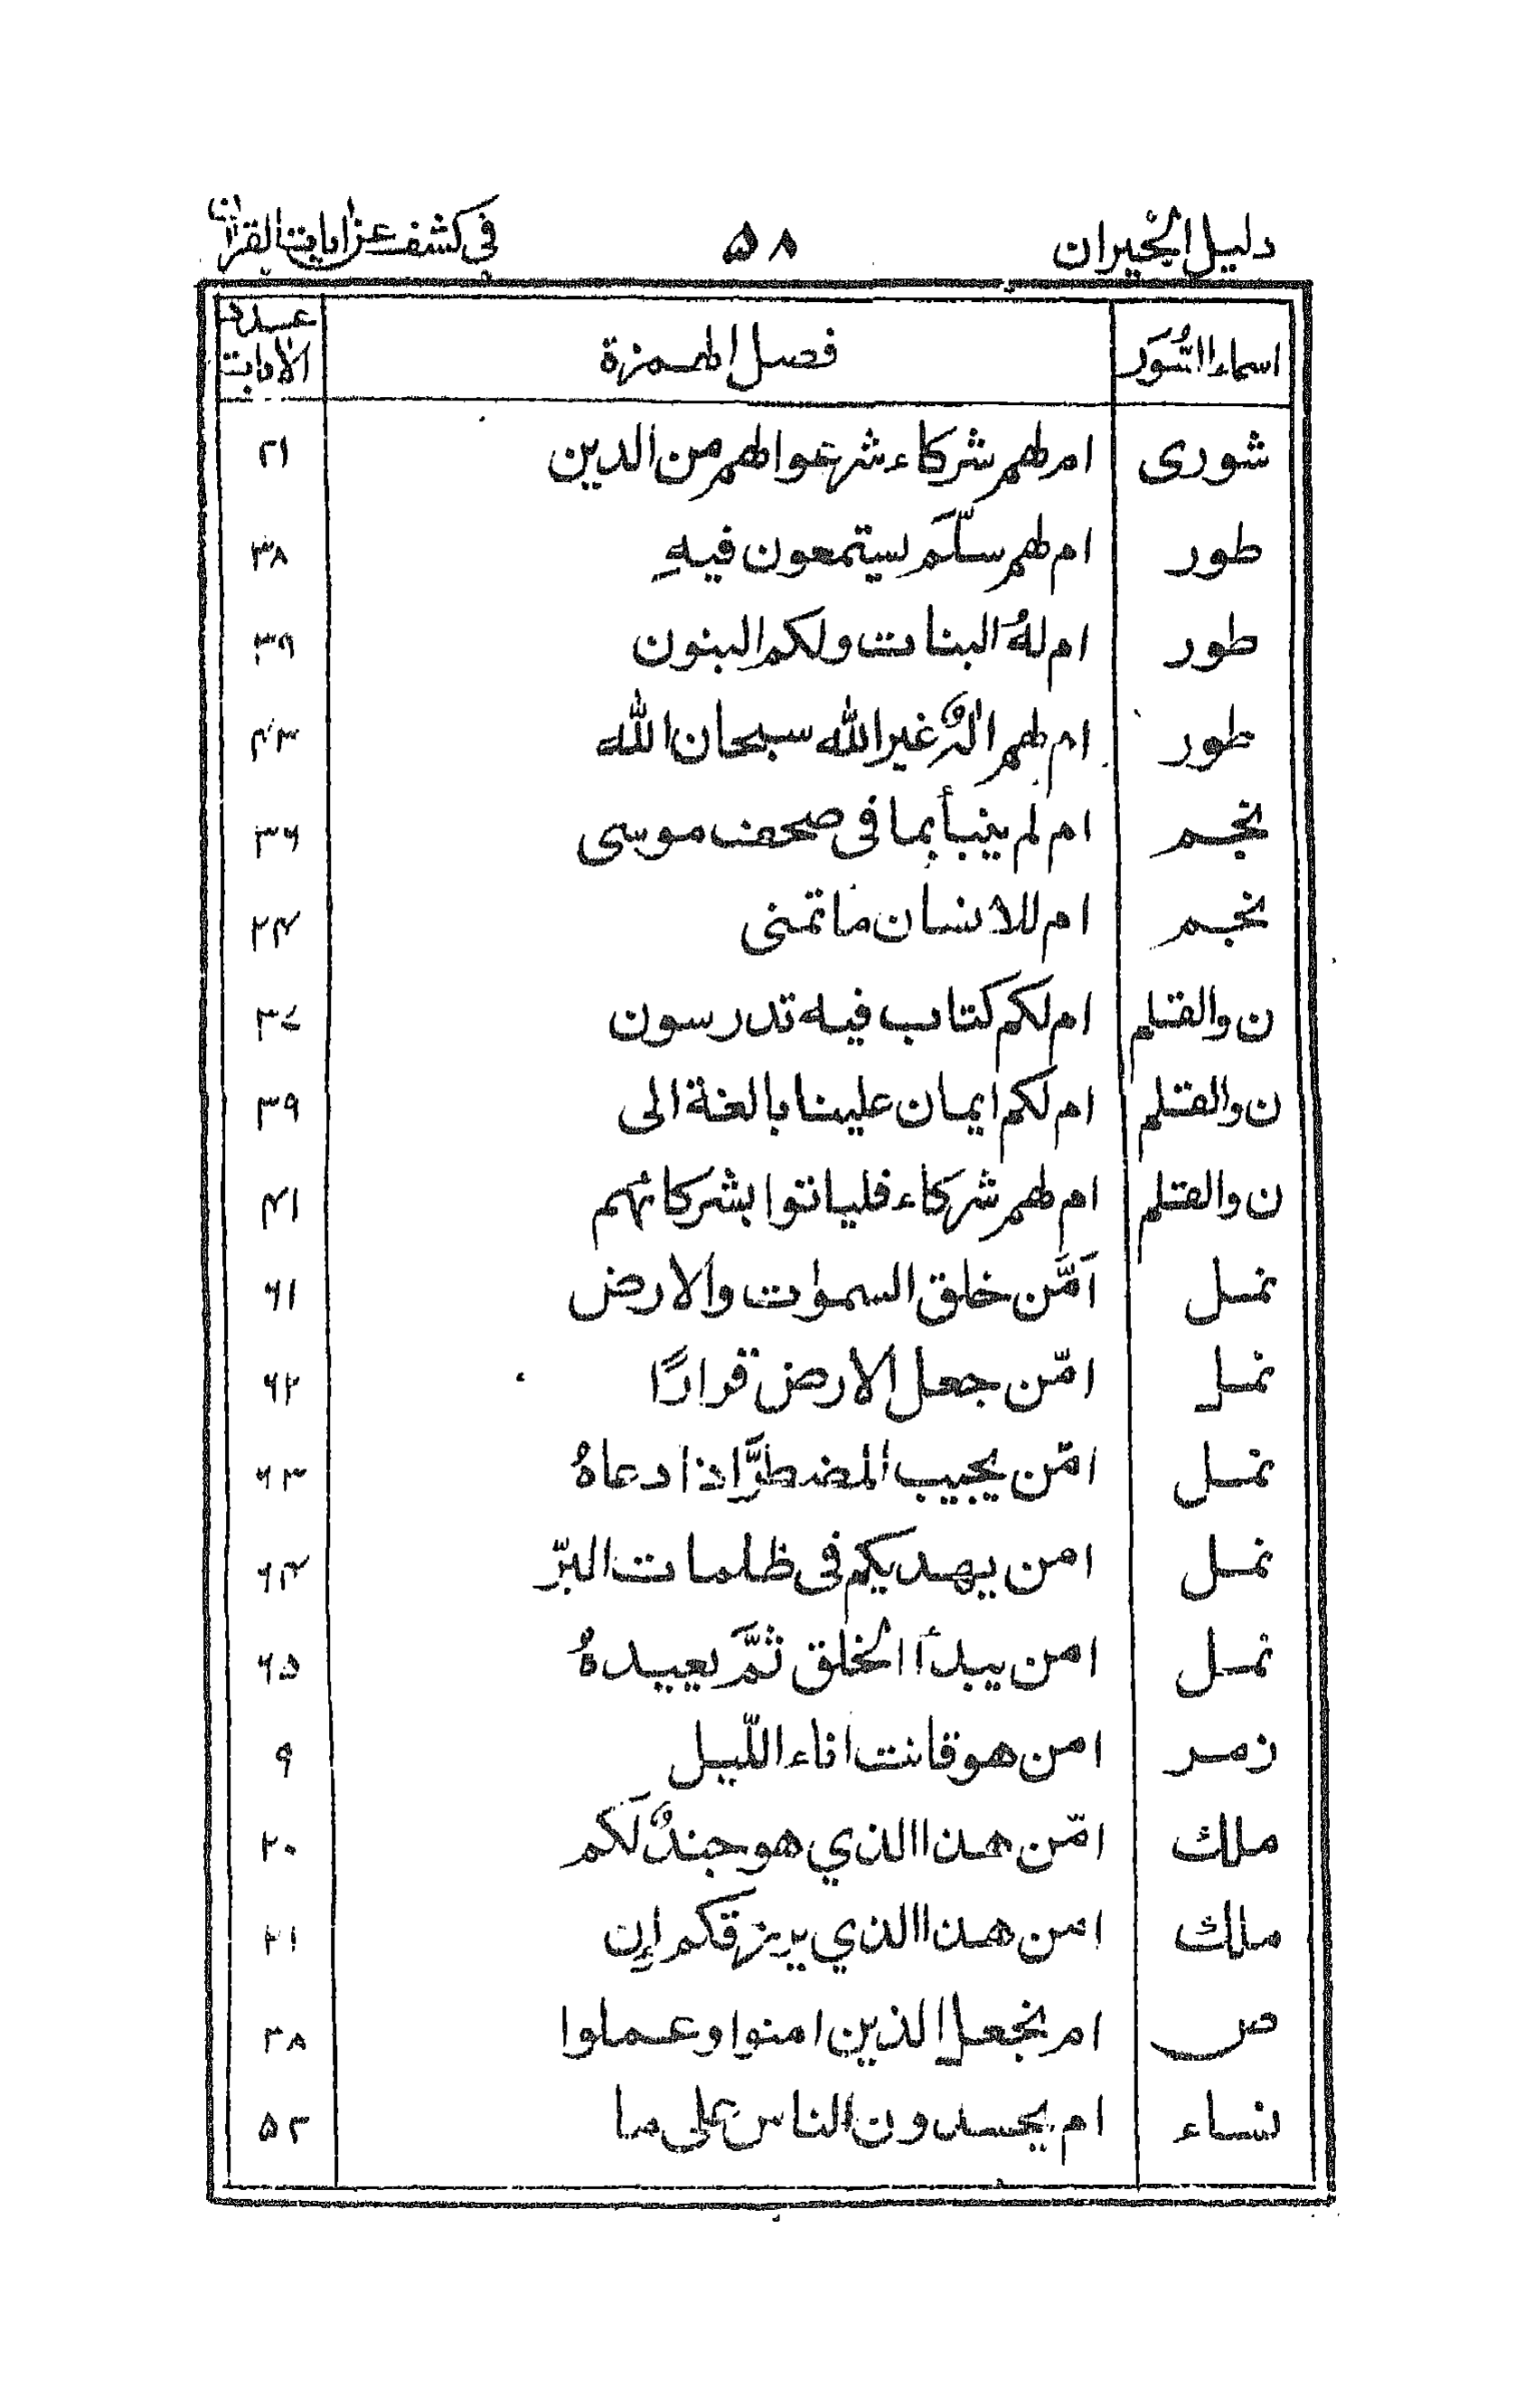 دليل الحيران ٥٨ في كشف عن ايات القران
اسماء السُّوَر فصل الهمزة عدد الايات
شورى ام لهم شركاء شرعوا لهم من الدين ٢١
طور ام لهم سلّمَ يستمعون فيهِ ٣٨
طور ام لهُ البنات ولكم البنون ٣٩
طور ام لهم الهٌ غير الله سبحان الله ۴٣
نجم ام لم ينبأ بما في صحف موسى ٣۶
نجم ام للانسان ما تمنى ٢۴
ن والقلم ام لكم كتاب فيه تدرسون ٣٧
ن والقلم ام لكم ايمان علينا بالغة الى ٣٩
ن والقلم ام لهم شركاء فلياتوا بشركائهم ۴١
نمل اَمَّن خلق السموات والارض ۶١
نمل امّن جعل الارض قرارًا ۶٢
نمل امّن يجيب المضطرَّ اذا دعاهُ ۶٣
نمل امن يهديكم في ظلمات البرّ ۶۴
نمل امن يبدأ الخلق ثمَّ يعيدهُ ۶۵
زمر امن هو قانت اناء اللّيل ٩
ملك امّن هذا الذي هو جندٌ لَكم ٢٠
ملك امن هذا الذي يرزقكم إن ٢١
ص ام نجعل الذين امنوا وعملوا ٢٨
نساء ام يحسدون الناس على ما ۵٣